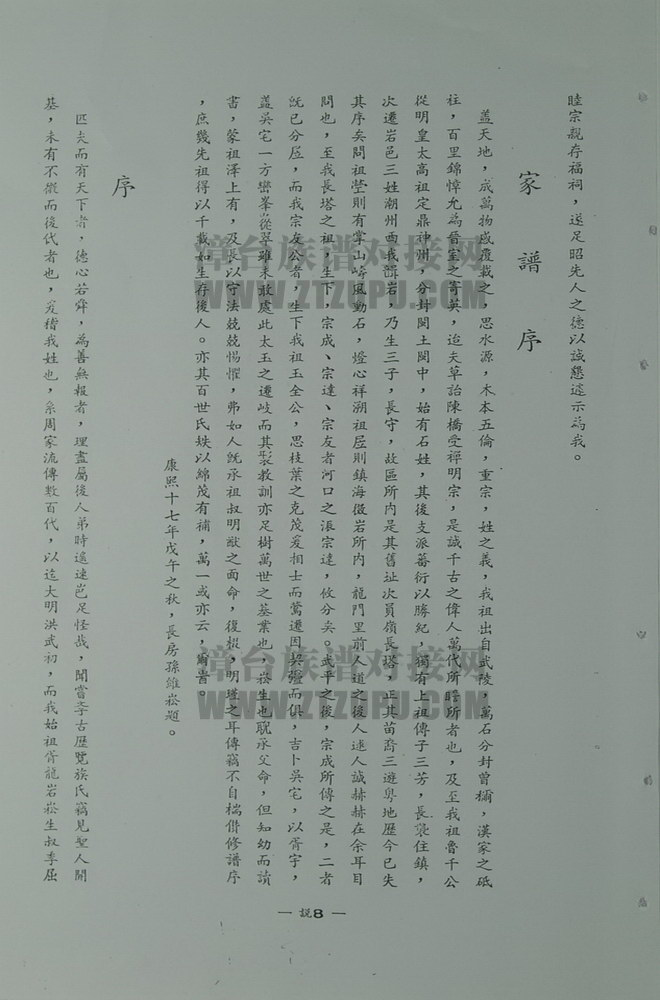 睦宗親存福祠，遂足昭先人之德以誠懇遂示為我。
家譜序
蓋天地，成萬物咸覆載之，思水源，木本五倫，重宗，姓之義，我祖出自武陵，萬石分封曾稱，漢家之砥
柱，百里錦幛允為晉室之奇英，迨夫草詒陳橋受禪明宗，是誠千古之偉人萬代所瞻所者也，及至我祖魯千公
從明皇太高祖定鼎神州，分封閩土閩中，始有石姓，其後支派蕃衍以勝紀，獨有上祖傳子三芳，長裒住鎮，
次遷岩邑三姓潮州西我諱岩，乃生三子，長守，故區所內是其舊祉次員嶺長塔，正其苗裔三遊粵地歷今已失
其序矣問祖塋則有掌山崎風動石，燈心祥溯祖居則鎮海徵岩所內，龍門里前人道之後人述人誠赫赫在余耳目
問也，至我長塔之祖，生下，宗成、宗達、宗友者河口之派宗達，攸分矣。武平之後，宗成所傳之是，二者
旣已分居，而我宗友公者，生下我祖玉全公，思枝葉之克茂爰相士而鶯遷因與強而俱，吉卜吳宅，以胥宇，
蓋吳宅一方巒峯從翠雖未敢處此太玉之遷岐而其教訓亦足樹萬世之基業也，崧生也躭承父命，但知幼而讀
書，蒙祖澤上有，及長以守法兢兢惕懼，弗如人旣承祖叔明猷之面命，復楫，明道之耳傳竊不自揣僭修譜序
，庶幾先祖得以千載如生存後人。亦其百世氏族以綿茂有補，萬一或亦云，爾旹。
康熙十七年戊午之秋，長房孫維崧題。
序
匹夫而有天下者，德心若舜，為善無報者，理盡屬後人弟時遠速豈足怪哉，聞嘗考古歷覽族氏竊見聖人開
基，未有不徵而後代者也，爰稽我姓也，系周家流傳數百代，以迄大明洪武初，而我始祖胥龍岩崧生叔季屈
— 說8 —
漳台族谱对接网
WWW.ZTZUPU.COM
漳台族谱对接网
WWW.ZTZUPU.COM